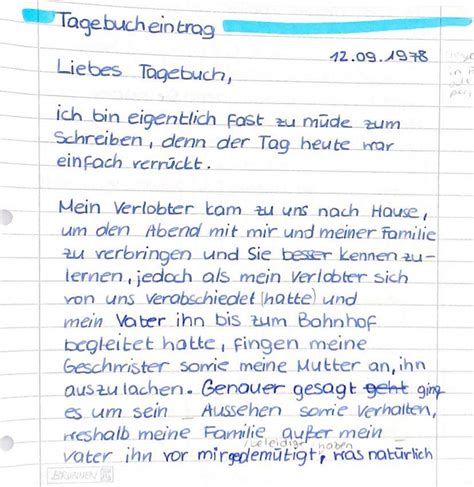 Tagebucheintrag
12.09.1978
Liebes Tagebuch,
ich bin eigentlich fast zu müde zum
Schreiben, denn der Tag heute war
einfach verrückt.
Mein Verlobter kam zu uns nach Hause,
um den Abend mit mir und meiner Familie
zu verbringen und Sie besser kennen zu-
lernen, jedoch als mein Verlobter sich
von uns verabschiedet (hatte) und
mein Vater ihn bis zum Bahnhof
begleitet hatte, fingen meine
Geschwister sowie meine Mutter an, ihn
auszulachen. Genauer gesagt geht ging
es um sein _ Aussehen sowie Verhalten,
weshalb meine Familie außer mein _
beleidigt haben
vater ihn vor mir gedemütigt, was natürlich
BRUNNEN